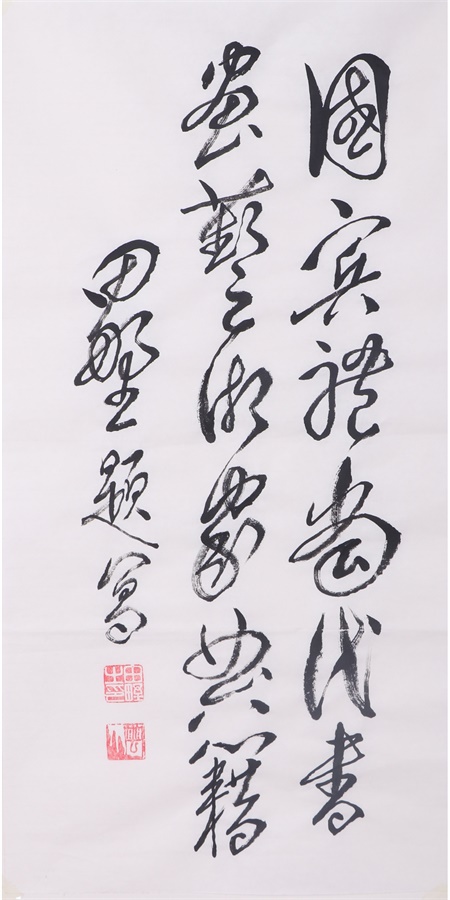 國賓禮當代書
畫藝術家典籍
田題寫